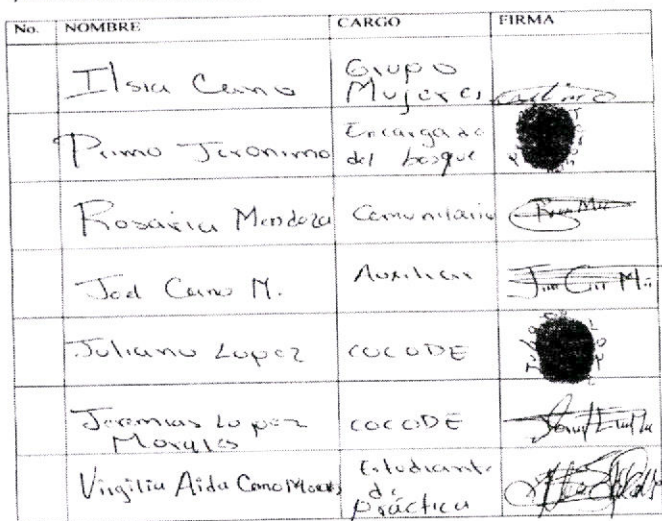 No. NOMBRE CARGO FIRMA
Ilsia Cano Grupo
Mujeres
Primo Jeronimo Encargado
del bosque
Rosaria Mendoza Comunitario
Joel Cano M. Auxiliar
Juliano Lopez COCODE
Jeremias Lopez COCODE
Morales
Virgilia Aida Cano Estudiante
de
práctica